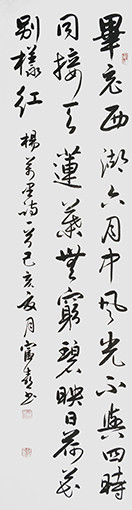 畢竟西湖六月中風光不與四時
同接天蓮葉無窮碧映日荷花
別樣紅 楊萬里詩一首己亥夏月